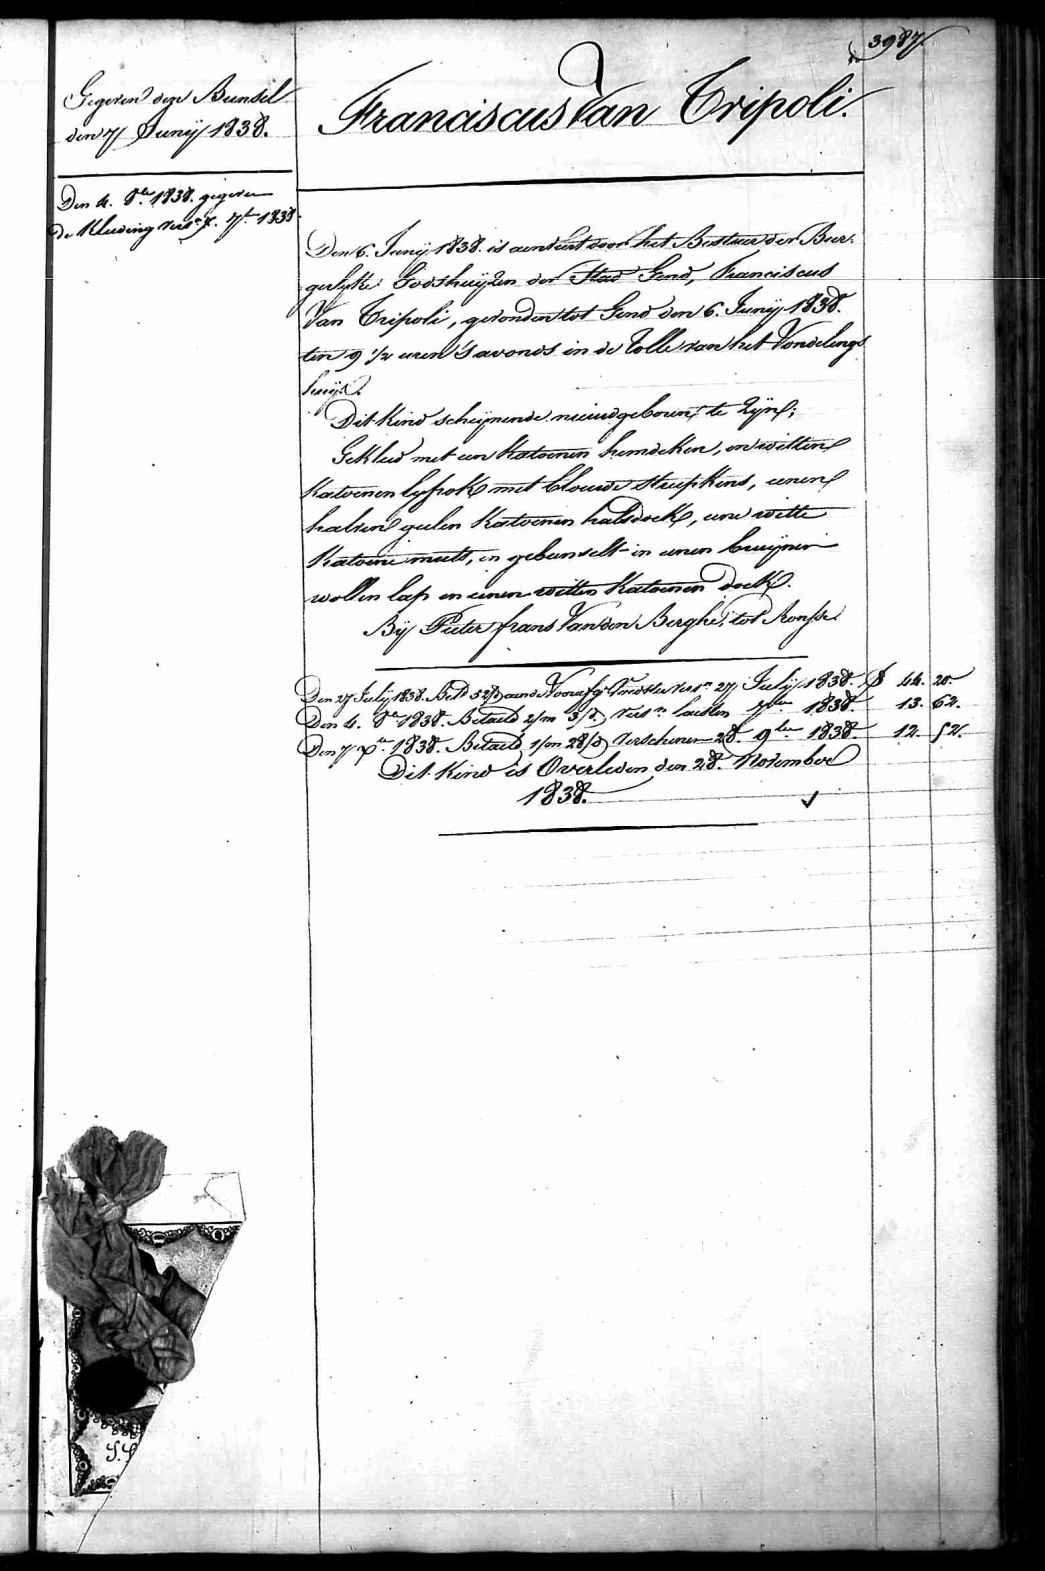 3987
Gegeven den Bunsel
den 7 Junij 1838.
Franciscus Van Tripoli.
Den 4. 8.bre 1838. gegeven
de Kleeding vers. 7.bre 1838
Den 6. Junij 1838. is aenveert door het Bestuer der Bur-
gerlyke Godshuijzen der Stad Gend, Franciscus
Van Tripoli, gevonden tot Gend den 6. Junij 1838.
ten 9 1/2 uren 's avonds in de Rolle van het Vondelings
huijs.
Dit Kind scheijnende nieuwgeboren te Zijn;
Gekleed met een Katoenen hemdeken, en witten
Katoenen lyfrok met blouwe streepkens, eenen
halven geelen Katoenen halsdoek, eene witte
Katoene muts, en gebunselt in eenen bruijnen
wollen lap en eenen witten Katoenen doek.
Bij Pieter frans Van den Berghe, tot Ronsse.
Den 27 Julij 1838. Bet.d 52/d aen de Voorz. vers.n 27 Julij 1838. 44. 20.
Den 4. 8.bre 1838. Betaeld 2/m 3/d vers.n laesten 7.bre 1838 13. 62.
Den 7 x.bre 1838. Betaeld 1/m 28/d Verschenen 28. 9.bre 1838. 12. 52.
Dit Kind is Overleden den 28. November
1838.
S.